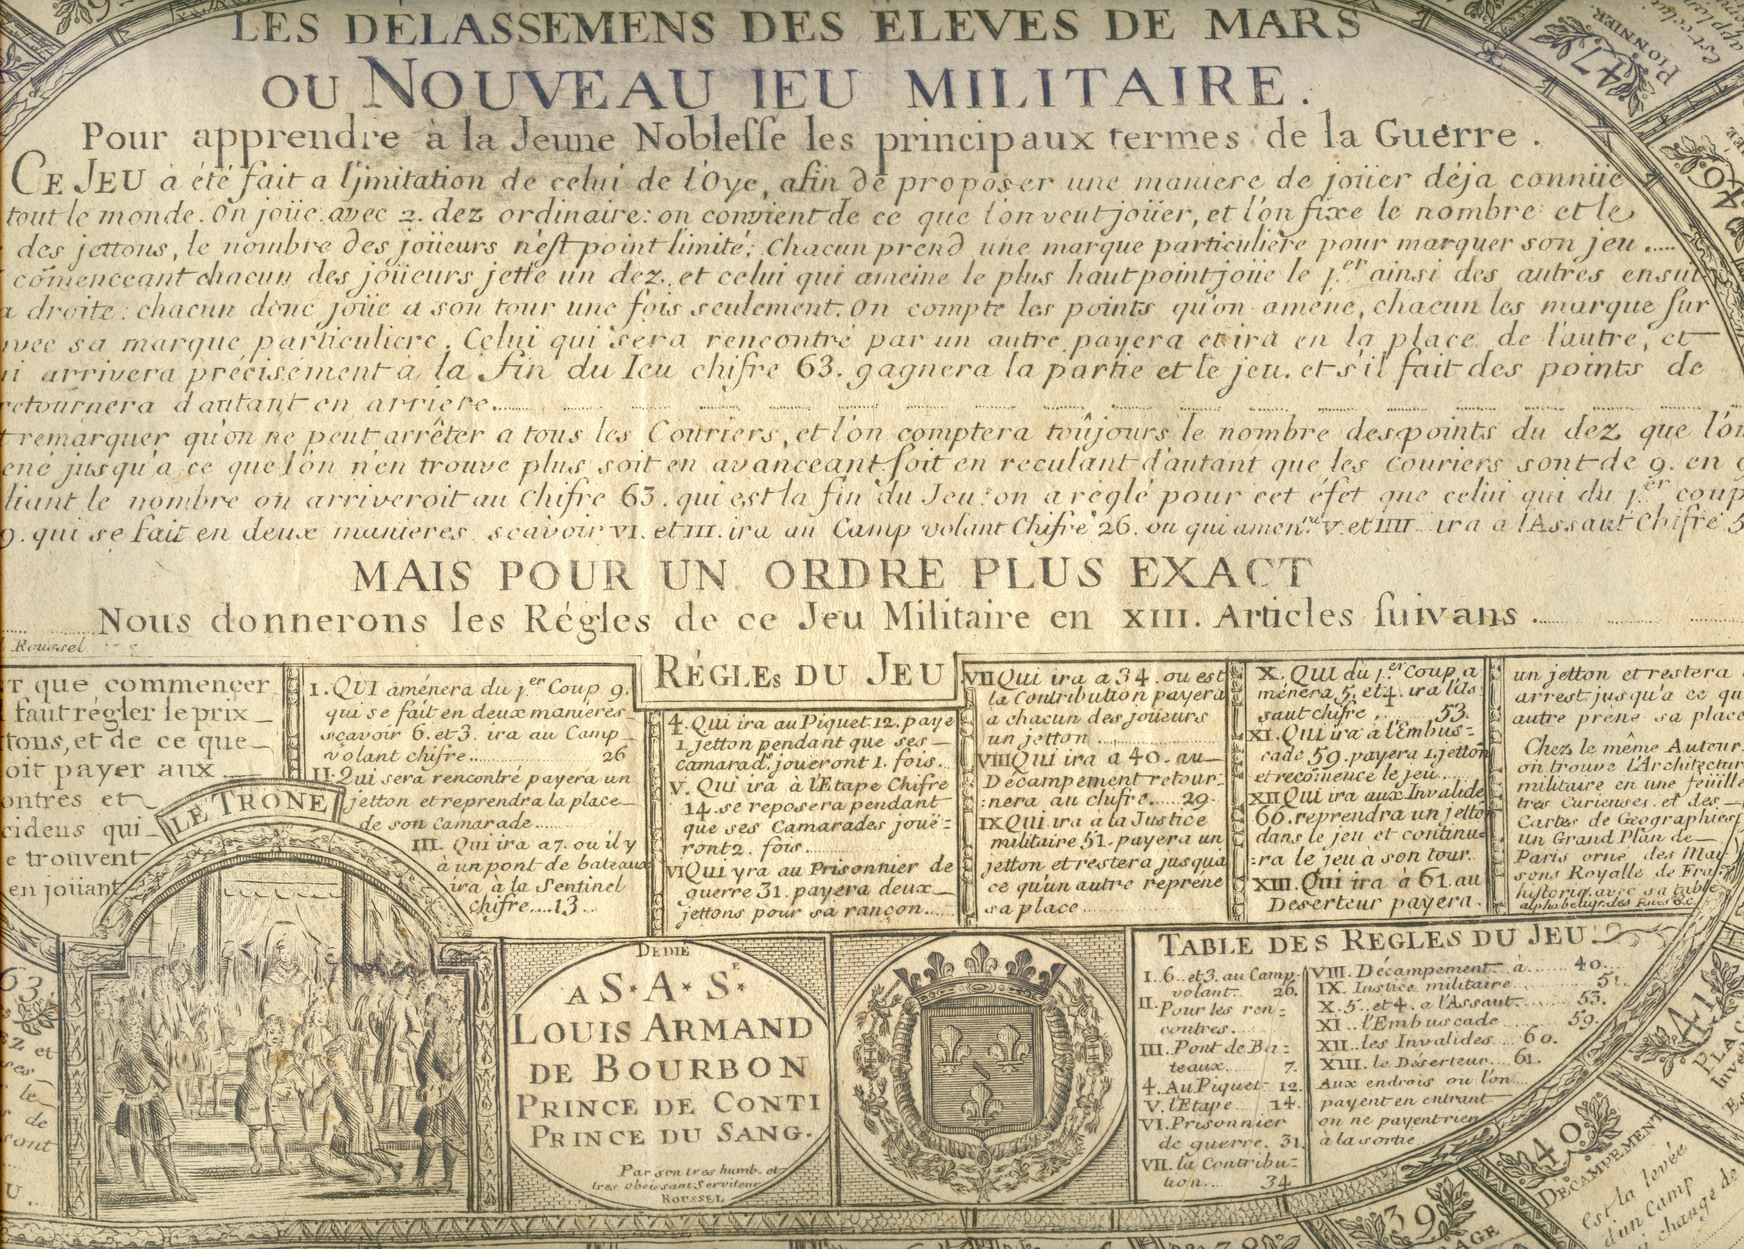 LES DÉLASSEMENS DES ÉLEVES DE MARS
OU NOUVEAU IEU MILITAIRE.
Pour apprendre à la Jeune Noblesse les principaux termes de la Guerre.
CE JEU a été fait a l'jmitation de celui de l'Oye, afin de proposer une maniere de joüer déja connüe
tout le monde. On joüe avec 2. dez ordinaire: on convient de ce que l'on veut joüer, et l'on fixe le nombre et le
des jettons, le nombre des joüeurs n'est point limité; Chacun prend une marque particulière pour marquer son jeu.....
cõmenceant chacun des joüeurs jette un dez. et celui qui ameine le plus haut point joüe le 1.er ainsi des autres ensui
a droite: chacun donc joüe a son tour une fois seulement. On compte les points qu'on améne, chacun les marque sur
avec sa marque particuliere. Celui qui sera rencontré par un autre payera et ira en la place de l'autre, et
i arrivera précisément a la fin du Ieu chifre 63. gagnera la partie et le jeu. et s'il fait des points de
retournera d'autant en arriere......
remarquer qu'on ne peut arrêter a tous les Couriers, et l'on comptera toûjours le nombre des points du dez que l'on
ené jusqu'a ce que l'on n'en trouve plus soit en avanceant soit en reculant d'autant que les couriers sont de 9. en 9
liant le nombre on arriveroit au chifre 63. qui est la fin du Jeu: on a réglé pour cet éfet que celui qui du 1.er coup
9. qui se fait en deux manieres. scavoir VI. et III. ira au Camp volant Chifre 26. ou qui amen.ra V. et IIII. ira a l'Assaut Chifre 5
MAIS POUR UN ORDRE PLUS EXACT
Nous donnerons les Régles de ce Jeu Militaire en XIII. Articles suivans.
Roussel
RÉGLES DU JEU
T que commencer
faut régler le prix
tons, et de ce que
oit payer aux
ontres et
cidens qui
e trouvent
en joüant
I. QUI aménera du 1.er Coup 9.
qui se fait en deux maniéres
sçavoir 6. et 3. ira au Camp
volant chifre 26
II. Qui sera rencontré payera un
jetton et reprendra la place
de son Camarade......
III. Qui ira a 7. ou il y
à un pont de bateaux
ira à la Sentinel
chifre....13..
4. Qui ira au Piquet 12. paye
1. jetton pendant que ses
camarad.s joueront 1. fois..
V. Qui ira à l'Etape Chifre
14. se reposera pendant
que ses Camarades joué-
ront 2. fois......
VI Qui yra au Prisonnier de
guerre 31. payera deux
jettons pour sa rançon.....
VII Qui ira a 34. ou est
la Contribution payera
a chacun des joüeurs
un jetton
VIII Qui ira a 40. au
Décampement retour:
:nera au chifre.....29.
IX Qui ira a la Justice
militaire 51. payera un
jetton et restera jusqua
ce qu'un autre reprene
sa place
X. QUI du 1.er Coup a
ménera 5. et 4. ira l'as
saut chifre...53.
XI. Qui ira à l'Embus:
cade 59. payera 1. jetton
et recõmence le jeu....
XII Qui ira aux Invalide
60. reprendra un jetton
dans le jeu et continue
:ra le jeu à son tour..
XIII. Qui ira à 61. au
Déserteur payera.
un jetton et restera
arrest jusqu'a ce qu
autre prene sa place
Chez le même Auteur
on trouve l'Architectur
militaire en une feüille
tres curieuses. et des
Cartes de Géographies
un Grand Plan de
Paris orné des May
sons Royalle de Fra
historiq. avec sa table
alphabetiq. des Rues &c.
LE TRONE
DEDIÉ
A S.A.S.E
LOUIS ARMAND
DE BOURBON
PRINCE DE CONTI
PRINCE DU SANG.
Par son tres humb. et
tres obeissant Serviteur
ROUSSEL
TABLE DES REGLES DU JEU
I. 6. et 3. au Camp
volant. 26.
II. Pour les ren:
contres.....
III. Pont de Ba:
teaux. 7.
4. Au Piquet. 12.
V. l'Etape....14.
VI. Prisonnier
de guerre. 31
VII. la Contribu:
tion....34
VIII. Décampement à.....40.
IX. Justice militaire......51.
X. 5. et 4. a l'Assaut......53.
XI..l'Embuscade......59.
XII..les Invalides...60.
XIII. le Déserteur...61.
Aux endrois ou l'on
payent en entrant
on ne payent rien
à la sortie
63.
ez et
ses
le
de
sont
47
PIONNIER.
46
41
PLAC
40
DECAMPEMENT
Est la levée
d'un Camp
change de
39
AGE
38